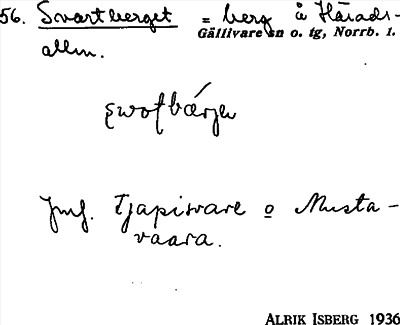 56. Svartberget = berg å Härads-
Gällivare sn o. tg, Norrb. l.
allm.
Jmf. Tjapisvare o Musta-
vaara.
ALRIK ISBERG 1936